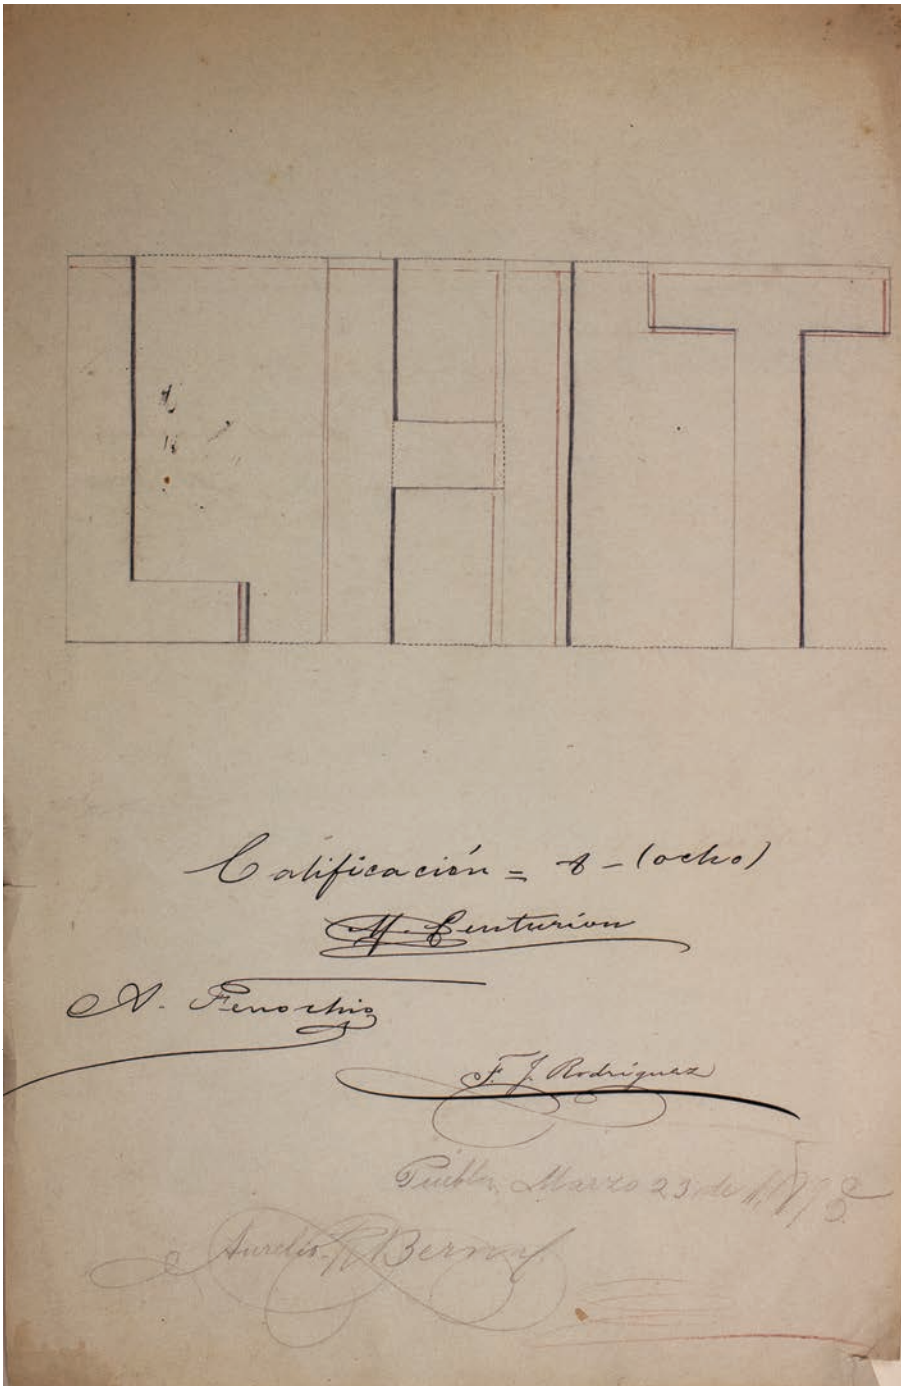 LHT
Calificación = 8 - (ocho)
M. Centurion
A. Fenochio
F. J. Rodriguez
Puebla, Marzo 23 de
Aurelio